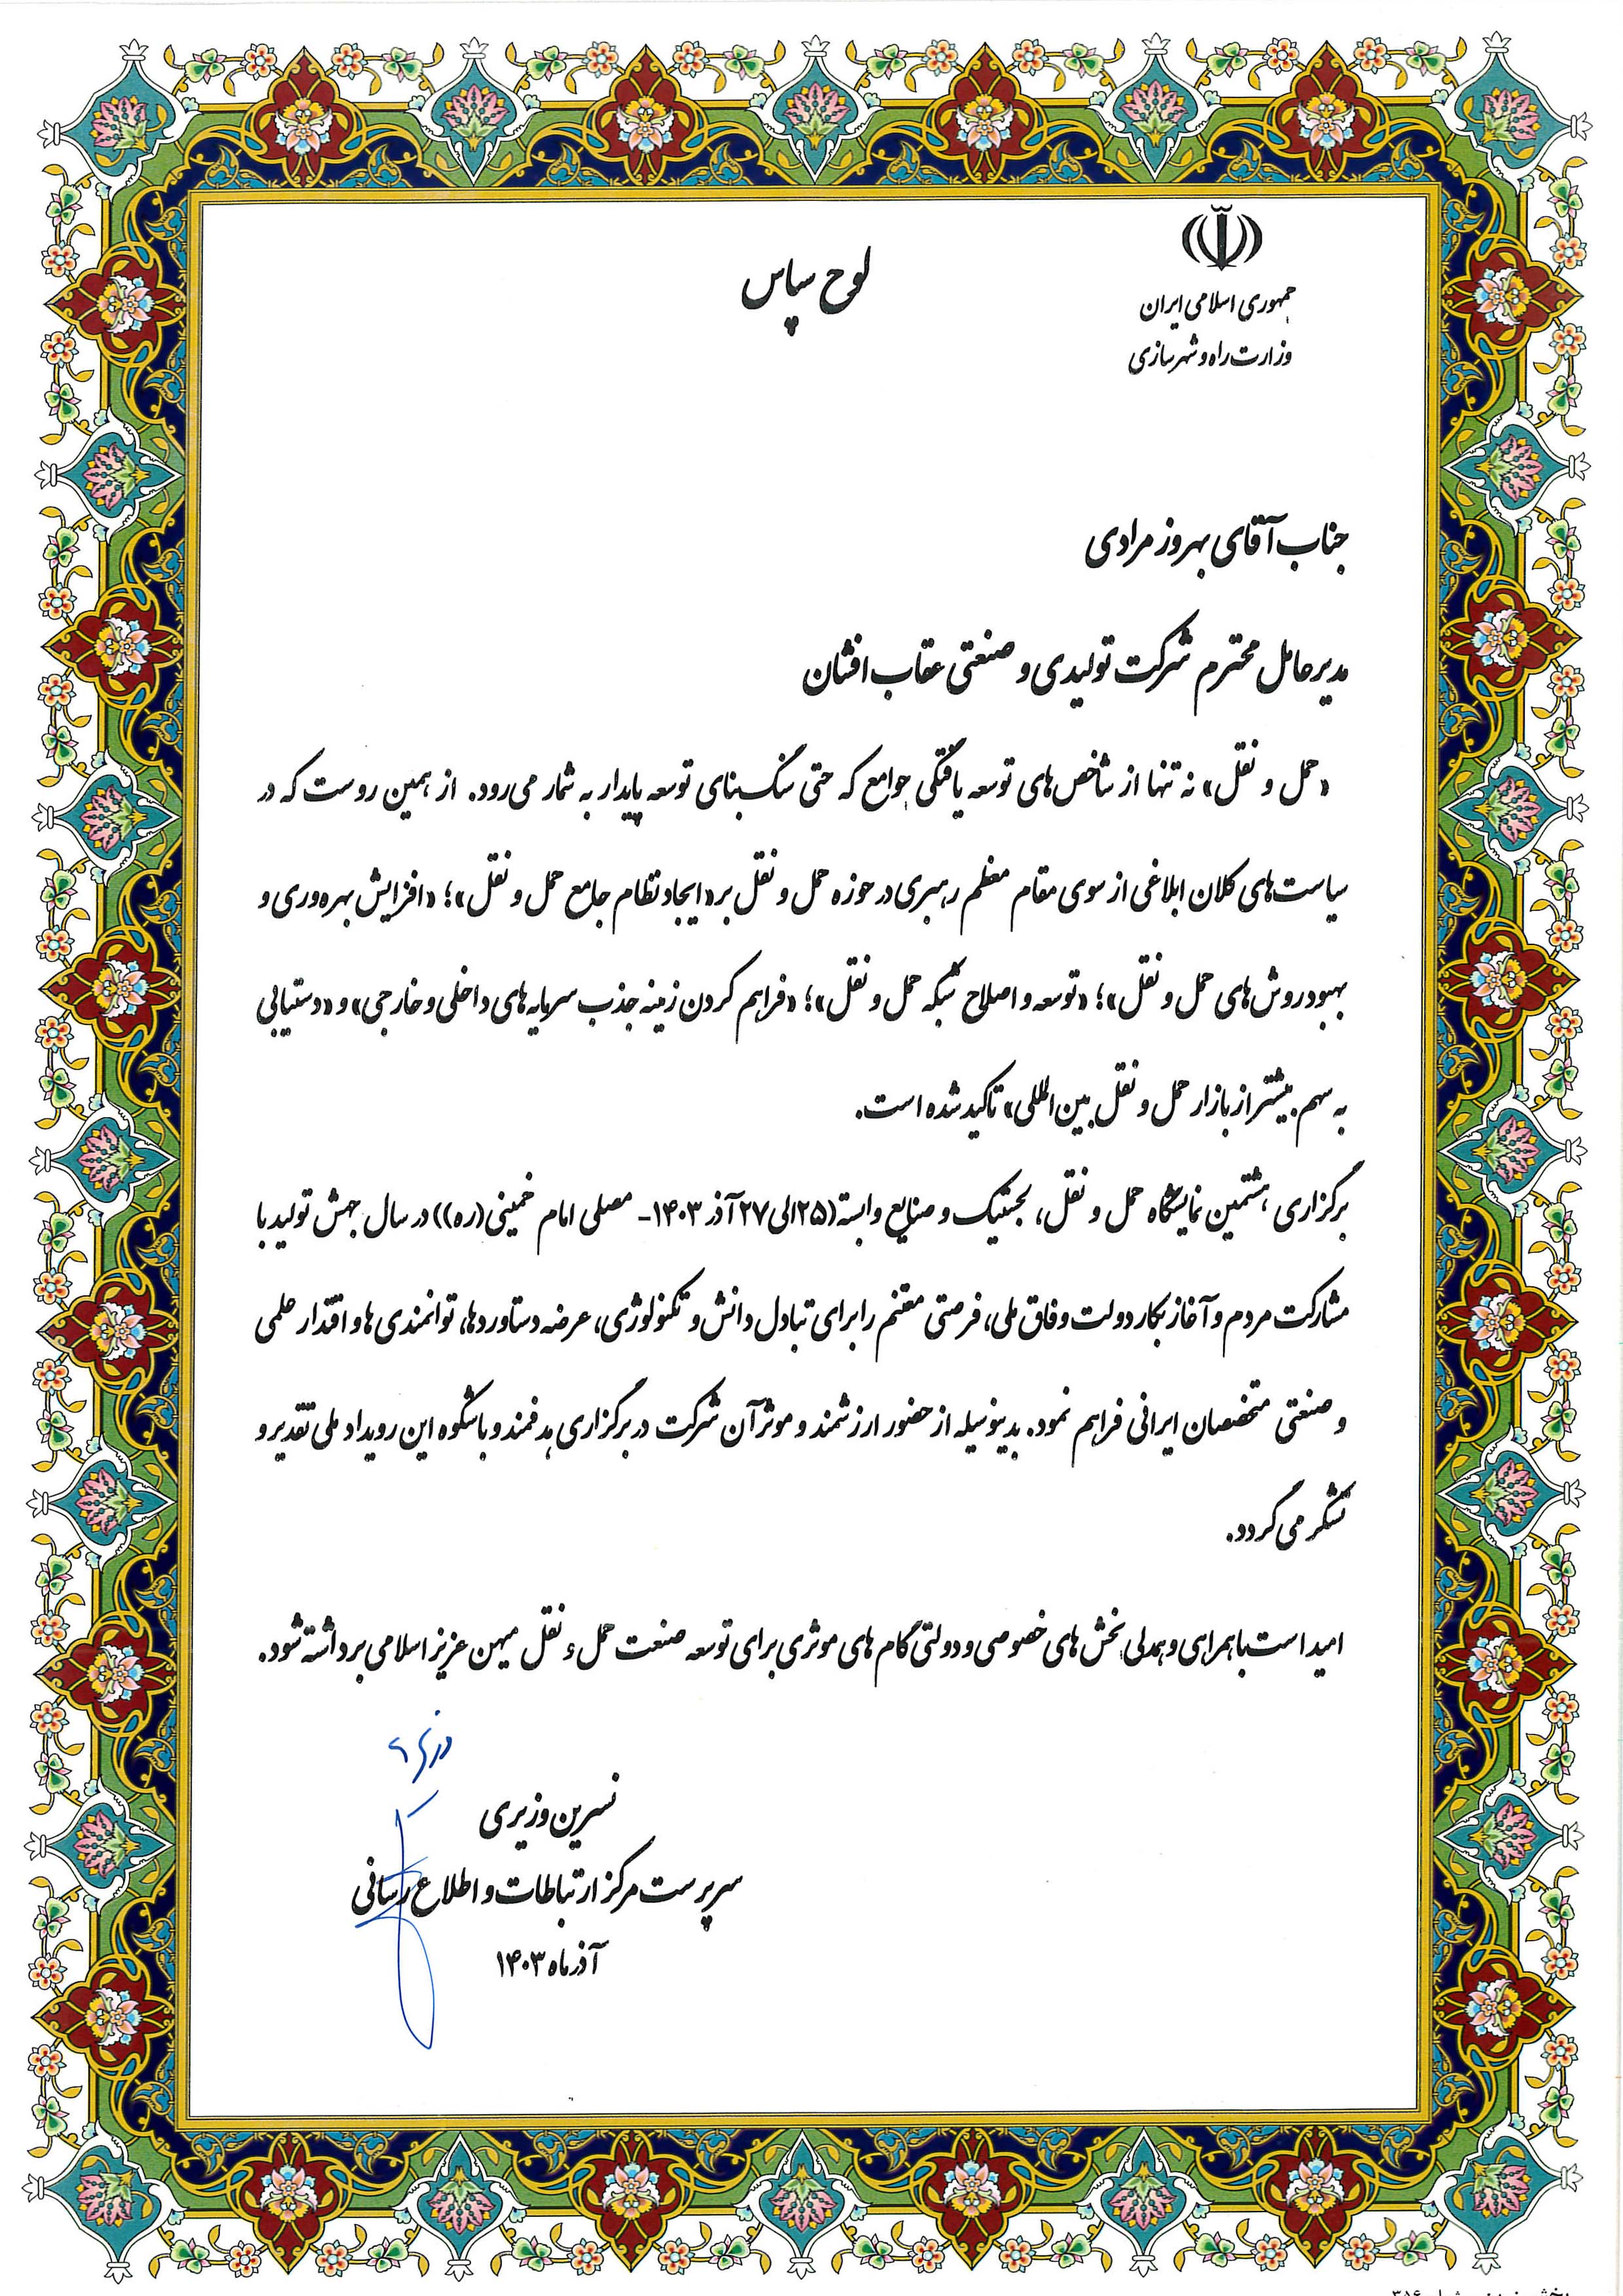 لوح سپاس
جمهوری اسلامی ایران
وزارت راه و شهرسازی
جناب آقای بهروز مرادی
مدیرعامل محترم شرکت تولیدی و صنعتی عقاب افشان
«حمل و نقل» نه تنها از شاخص‌های توسعه یافتگی جوامع که حتی سنگ بنای توسعه پایدار به شمار می‌رود. از همین روست که در
سیاست‌های کلان ابلاغی از سوی مقام معظم رهبری در حوزه حمل و نقل بر «ایجاد نظام جامع حمل و نقل»؛ «افزایش بهره‌وری و
بهبود روش‌های حمل و نقل»؛ «توسعه و اصلاح شبکه حمل و نقل»؛ «فراهم کردن زمینه جذب سرمایه‌های داخلی و خارجی» و «دستیابی
به سهم بیشتر از بازار حمل و نقل بین‌المللی» تاکید شده است.
برگزاری هشتمین نمایشگاه حمل و نقل، لجستیک و صنایع وابسته (۲۵ الی ۲۷ آذر ۱۴۰۳- مصلی امام خمینی(ره)) در سال جهش تولید با
مشارکت مردم و آغاز بکار دولت وفاق ملی، فرصتی مغتنم را برای تبادل دانش و تکنولوژی، عرضه دستاوردها، توانمندی‌ها و اقتدار علمی
و صنعتی متخصصان ایرانی فراهم نمود. بدینوسیله از حضور ارزشمند و موثر آن شرکت در برگزاری هدفمند و باشکوه این رویداد ملی تقدیر و
تشکر می‌گردد.
امید است با همراهی و همدلی بخش‌های خصوصی و دولتی گام‌های موثری برای توسعه صنعت حمل و نقل میهن عزیز اسلامی برداشته شود.
نسرین وزیری
سرپرست مرکز ارتباطات و اطلاع رسانی
آذرماه ۱۴۰۳